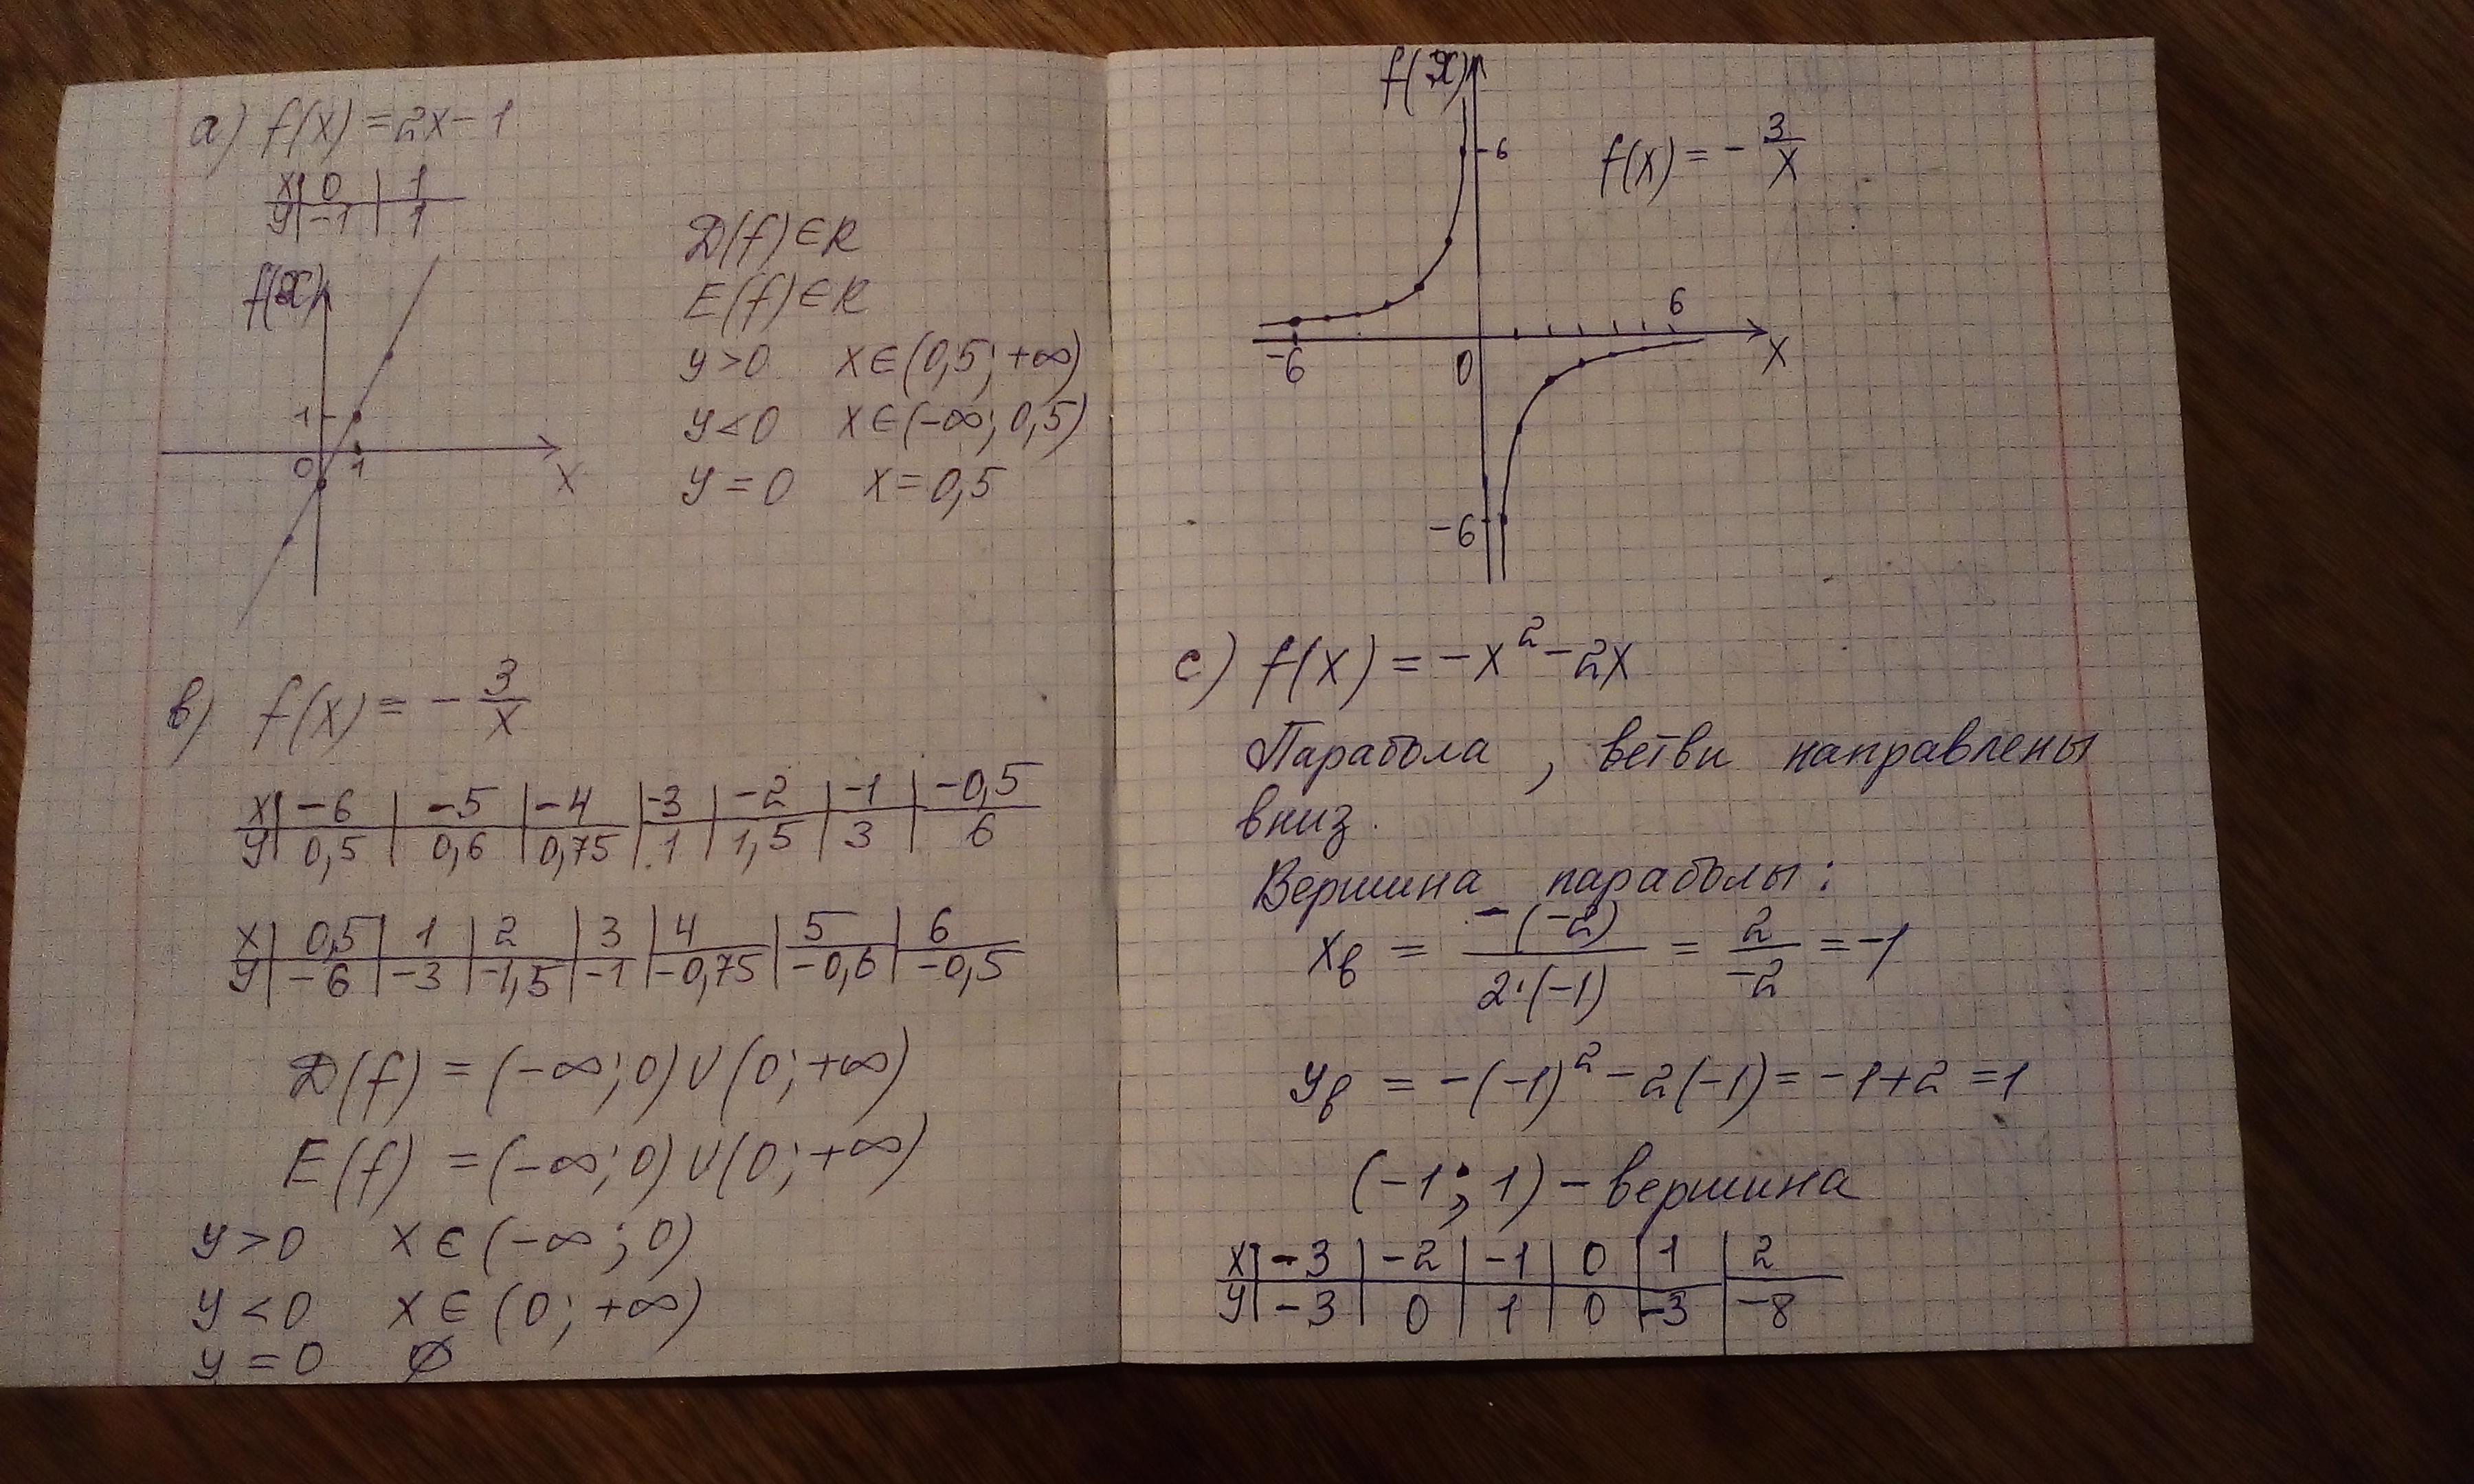 а) f(x) = 2x - 1
x | 0 | 1
y | -1 | 1
f(x)
1
0 1
x
D(f) ∈ R
E(f) ∈ R
y > 0 x ∈ (0,5; +∞)
y < 0 x ∈ (-∞; 0,5)
y = 0 x = 0,5
в) f(x) = - 3/x
x | -6 | -5 | -4 | -3 | -2 | -1 | -0,5
y | 0,5 | 0,6 | 0,75 | 1 | 1,5 | 3 | 6
x | 0,5 | 1 | 2 | 3 | 4 | 5 | 6
y | -6 | -3 | -1,5 | -1 | -0,75 | -0,6 | -0,5
D(f) = (-∞; 0) ∪ (0; +∞)
E(f) = (-∞; 0) ∪ (0; +∞)
y > 0 x ∈ (-∞; 0)
y < 0 x ∈ (0; +∞)
y = 0 ∅
f(x)
-6
f(x) = - 3/x
6
-6 0 x
-6
с) f(x) = -x² - 2x
Парабола, ветви направлены
вниз.
Вершина параболы:
xв = -(-2)/2·(-1) = 2/-2 = -1
yв = -(-1)² - 2(-1) = -1 + 2 = 1
(-1; 1) - вершина
x | -3 | -2 | -1 | 0 | 1 | 2
y | -3 | 0 | 1 | 0 | -3 | -8